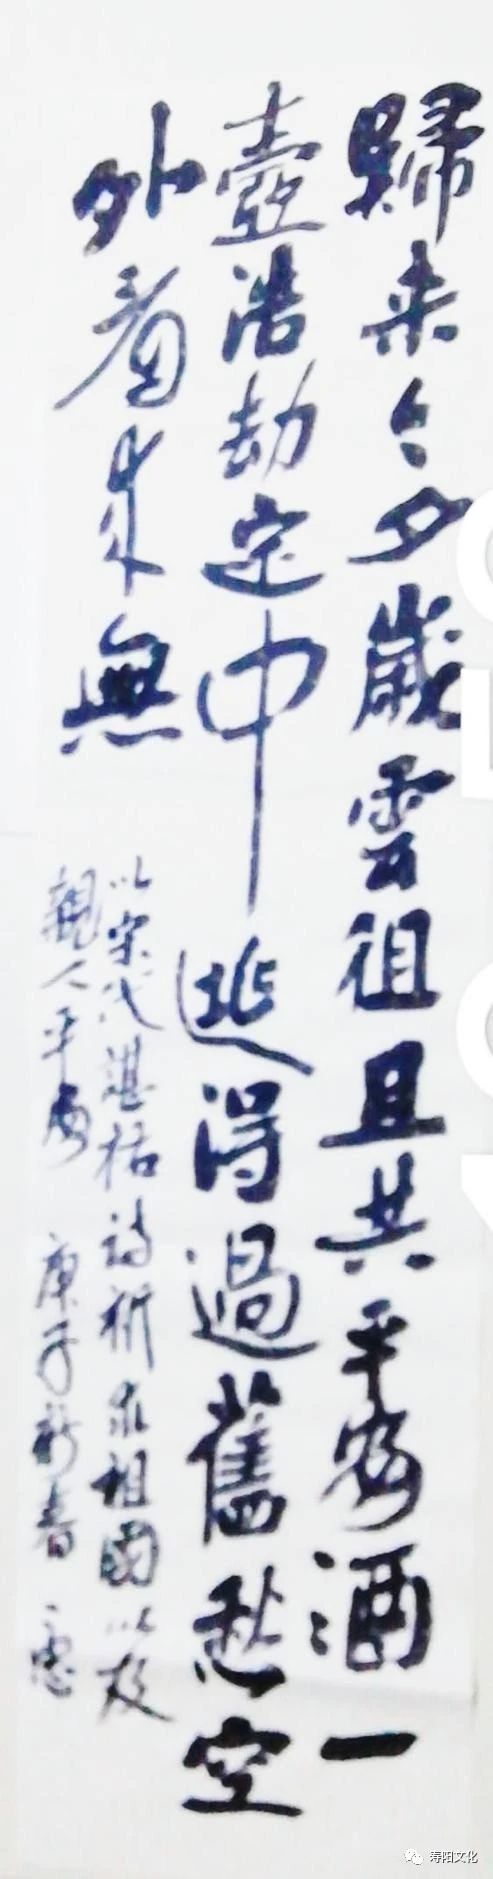 歸来今夕歲雲徂且共平安酒一
壺浩劫定中逃得過舊愁空
外看來無
以宋代湛祐詩祈求祖國以及
親人平安 庚子新春
寿阳文化